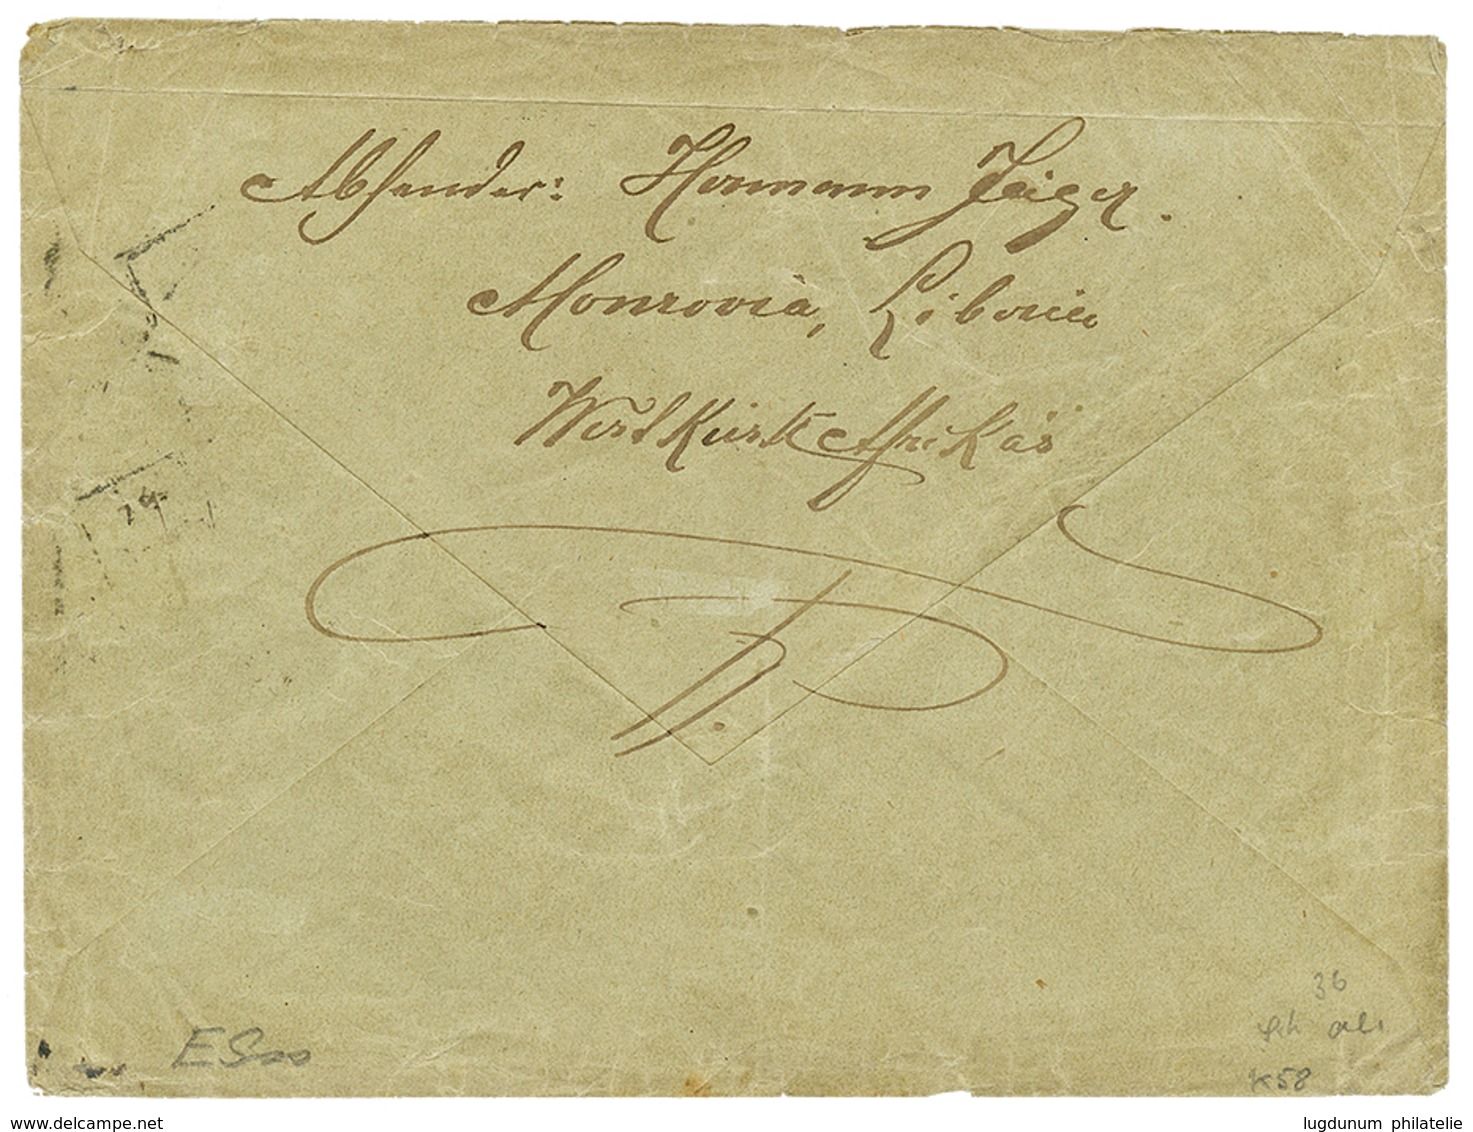 Absender: Hermann Jäiger.
Monrovia, Liberia
West Küste Afrikas
24
36
K58
www.delcampe.net
lugdunum philatelie